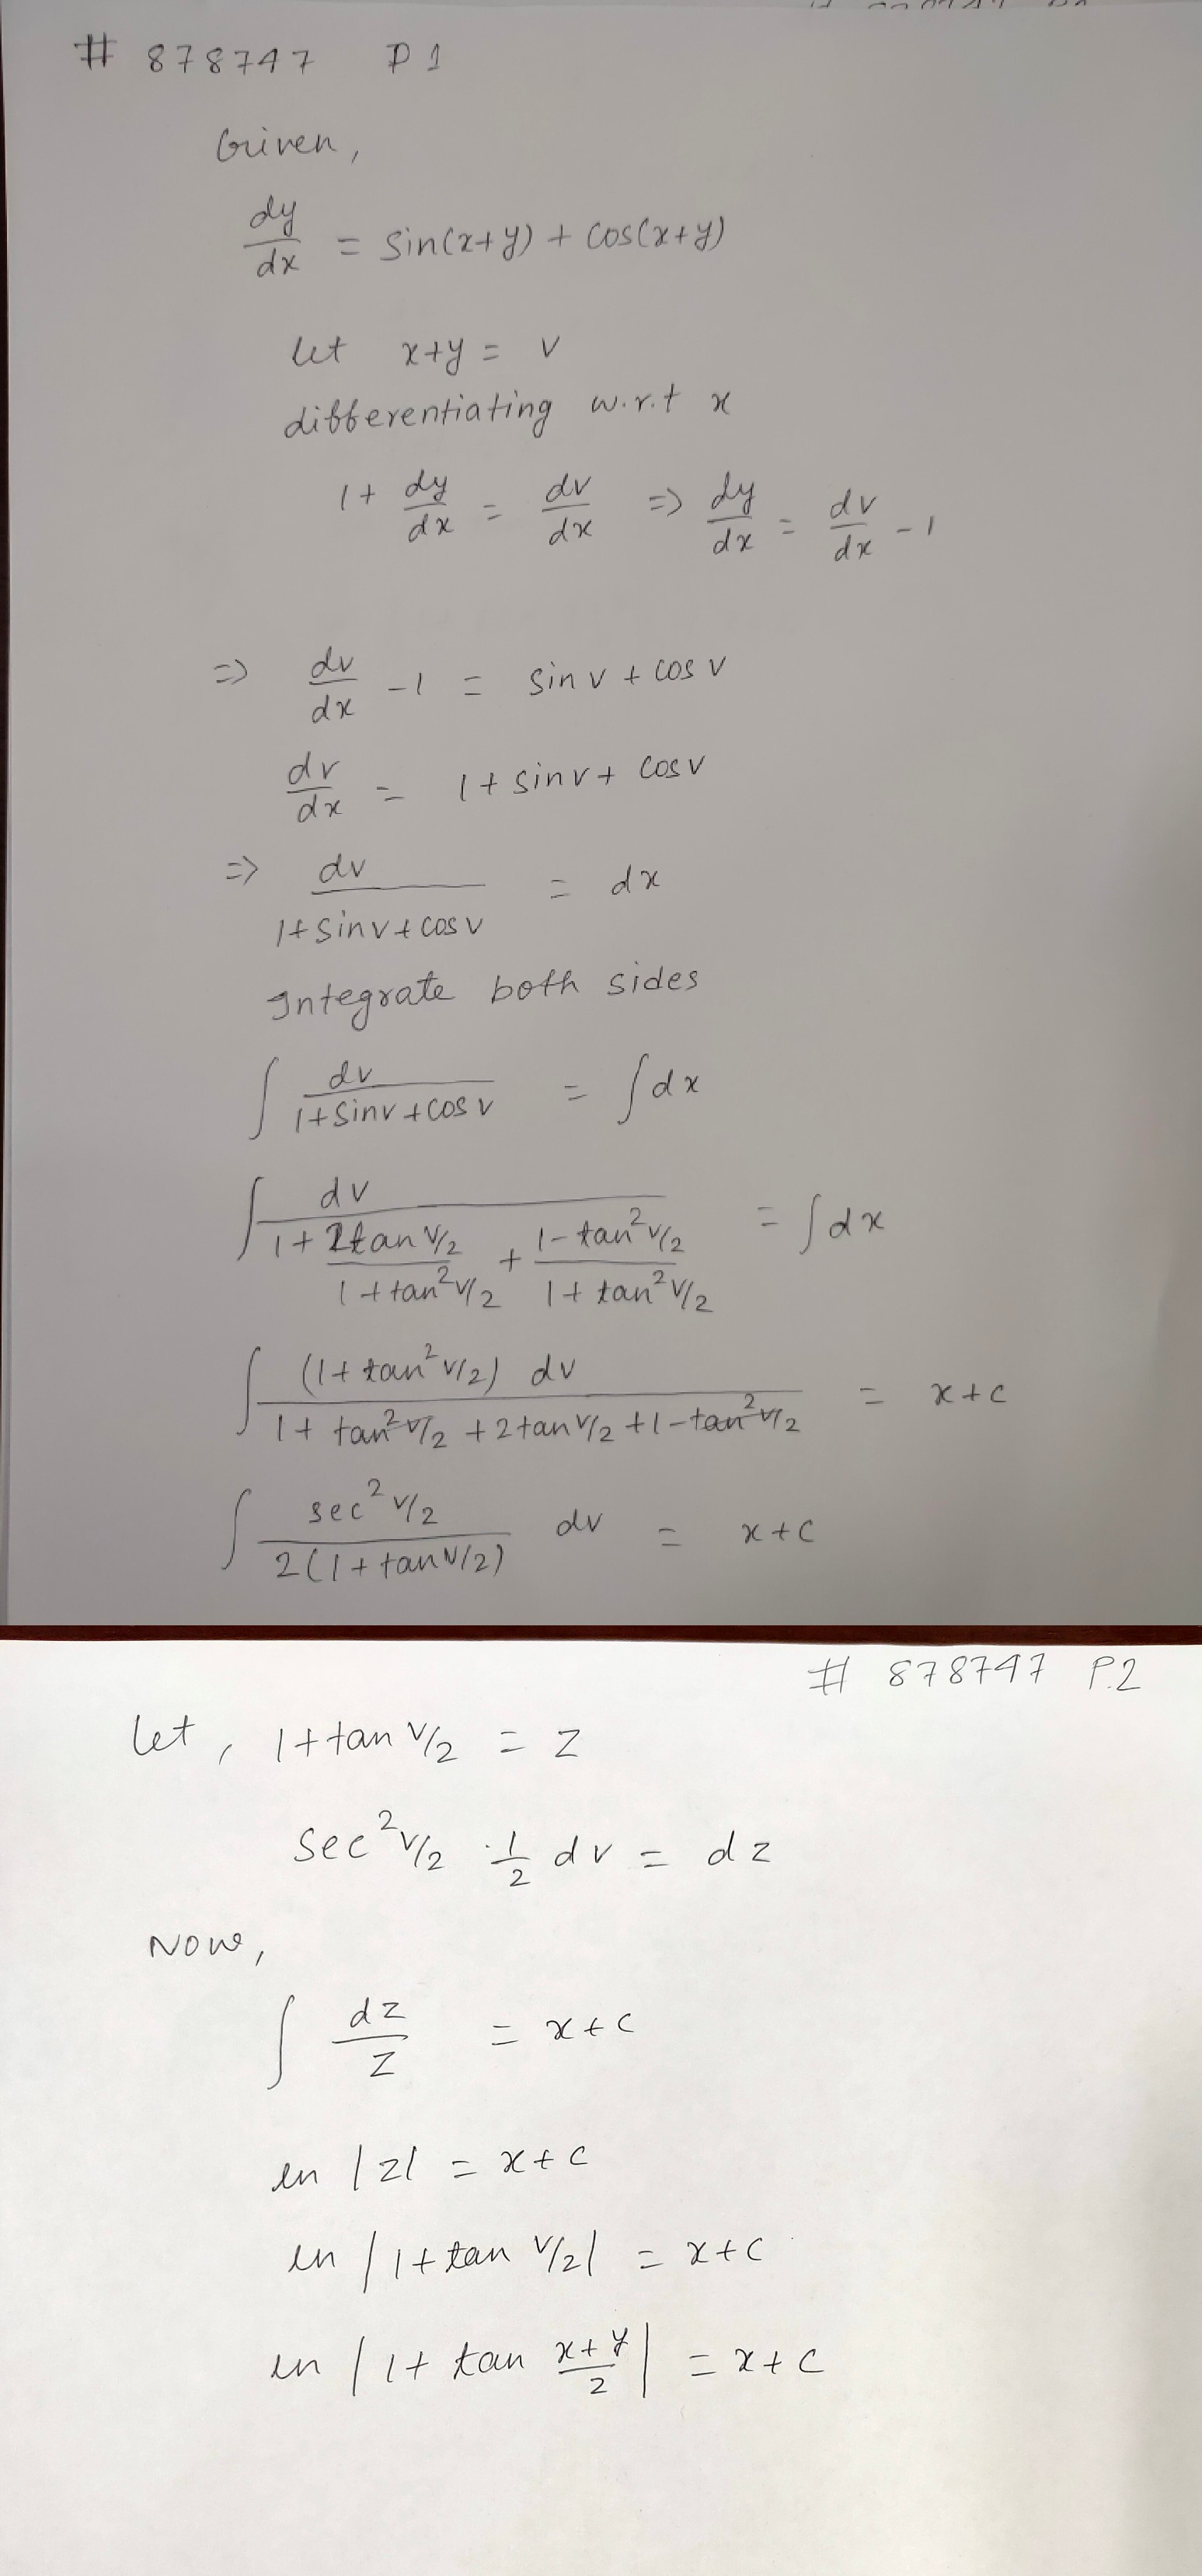 # 878747 P 1
Given,
dy/dx = sin(x+y) + cos(x+y)
let x+y = v
differentiating w.r.t x
1 + dy/dx = dv/dx => dy/dx = dv/dx - 1
=> dv/dx - 1 = sin v + cos v
dv/dx = 1 + sin v + cos v
=> dv/(1+sin v+cos v) = dx
Integrate both sides
∫ dv/(1+sin v+cos v) = ∫dx
∫ dv/(1 + 2tan v/2/(1+tan² v/2) + (1-tan² v/2)/(1+tan² v/2)) = ∫dx
∫ (1+tan² v/2) dv/(1+tan² v/2 + 2tan v/2 + 1 - tan² v/2) = x+c
∫ sec² v/2/(2(1+tan v/2)) dv = x+c
# 878747 P.2
Let, 1+tan v/2 = z
sec² v/2 · 1/2 dv = dz
Now,
∫ dz/z = x+c
ln |z| = x+c
ln |1+tan v/2| = x+c
ln |1+ tan (x+y)/2| = x+c